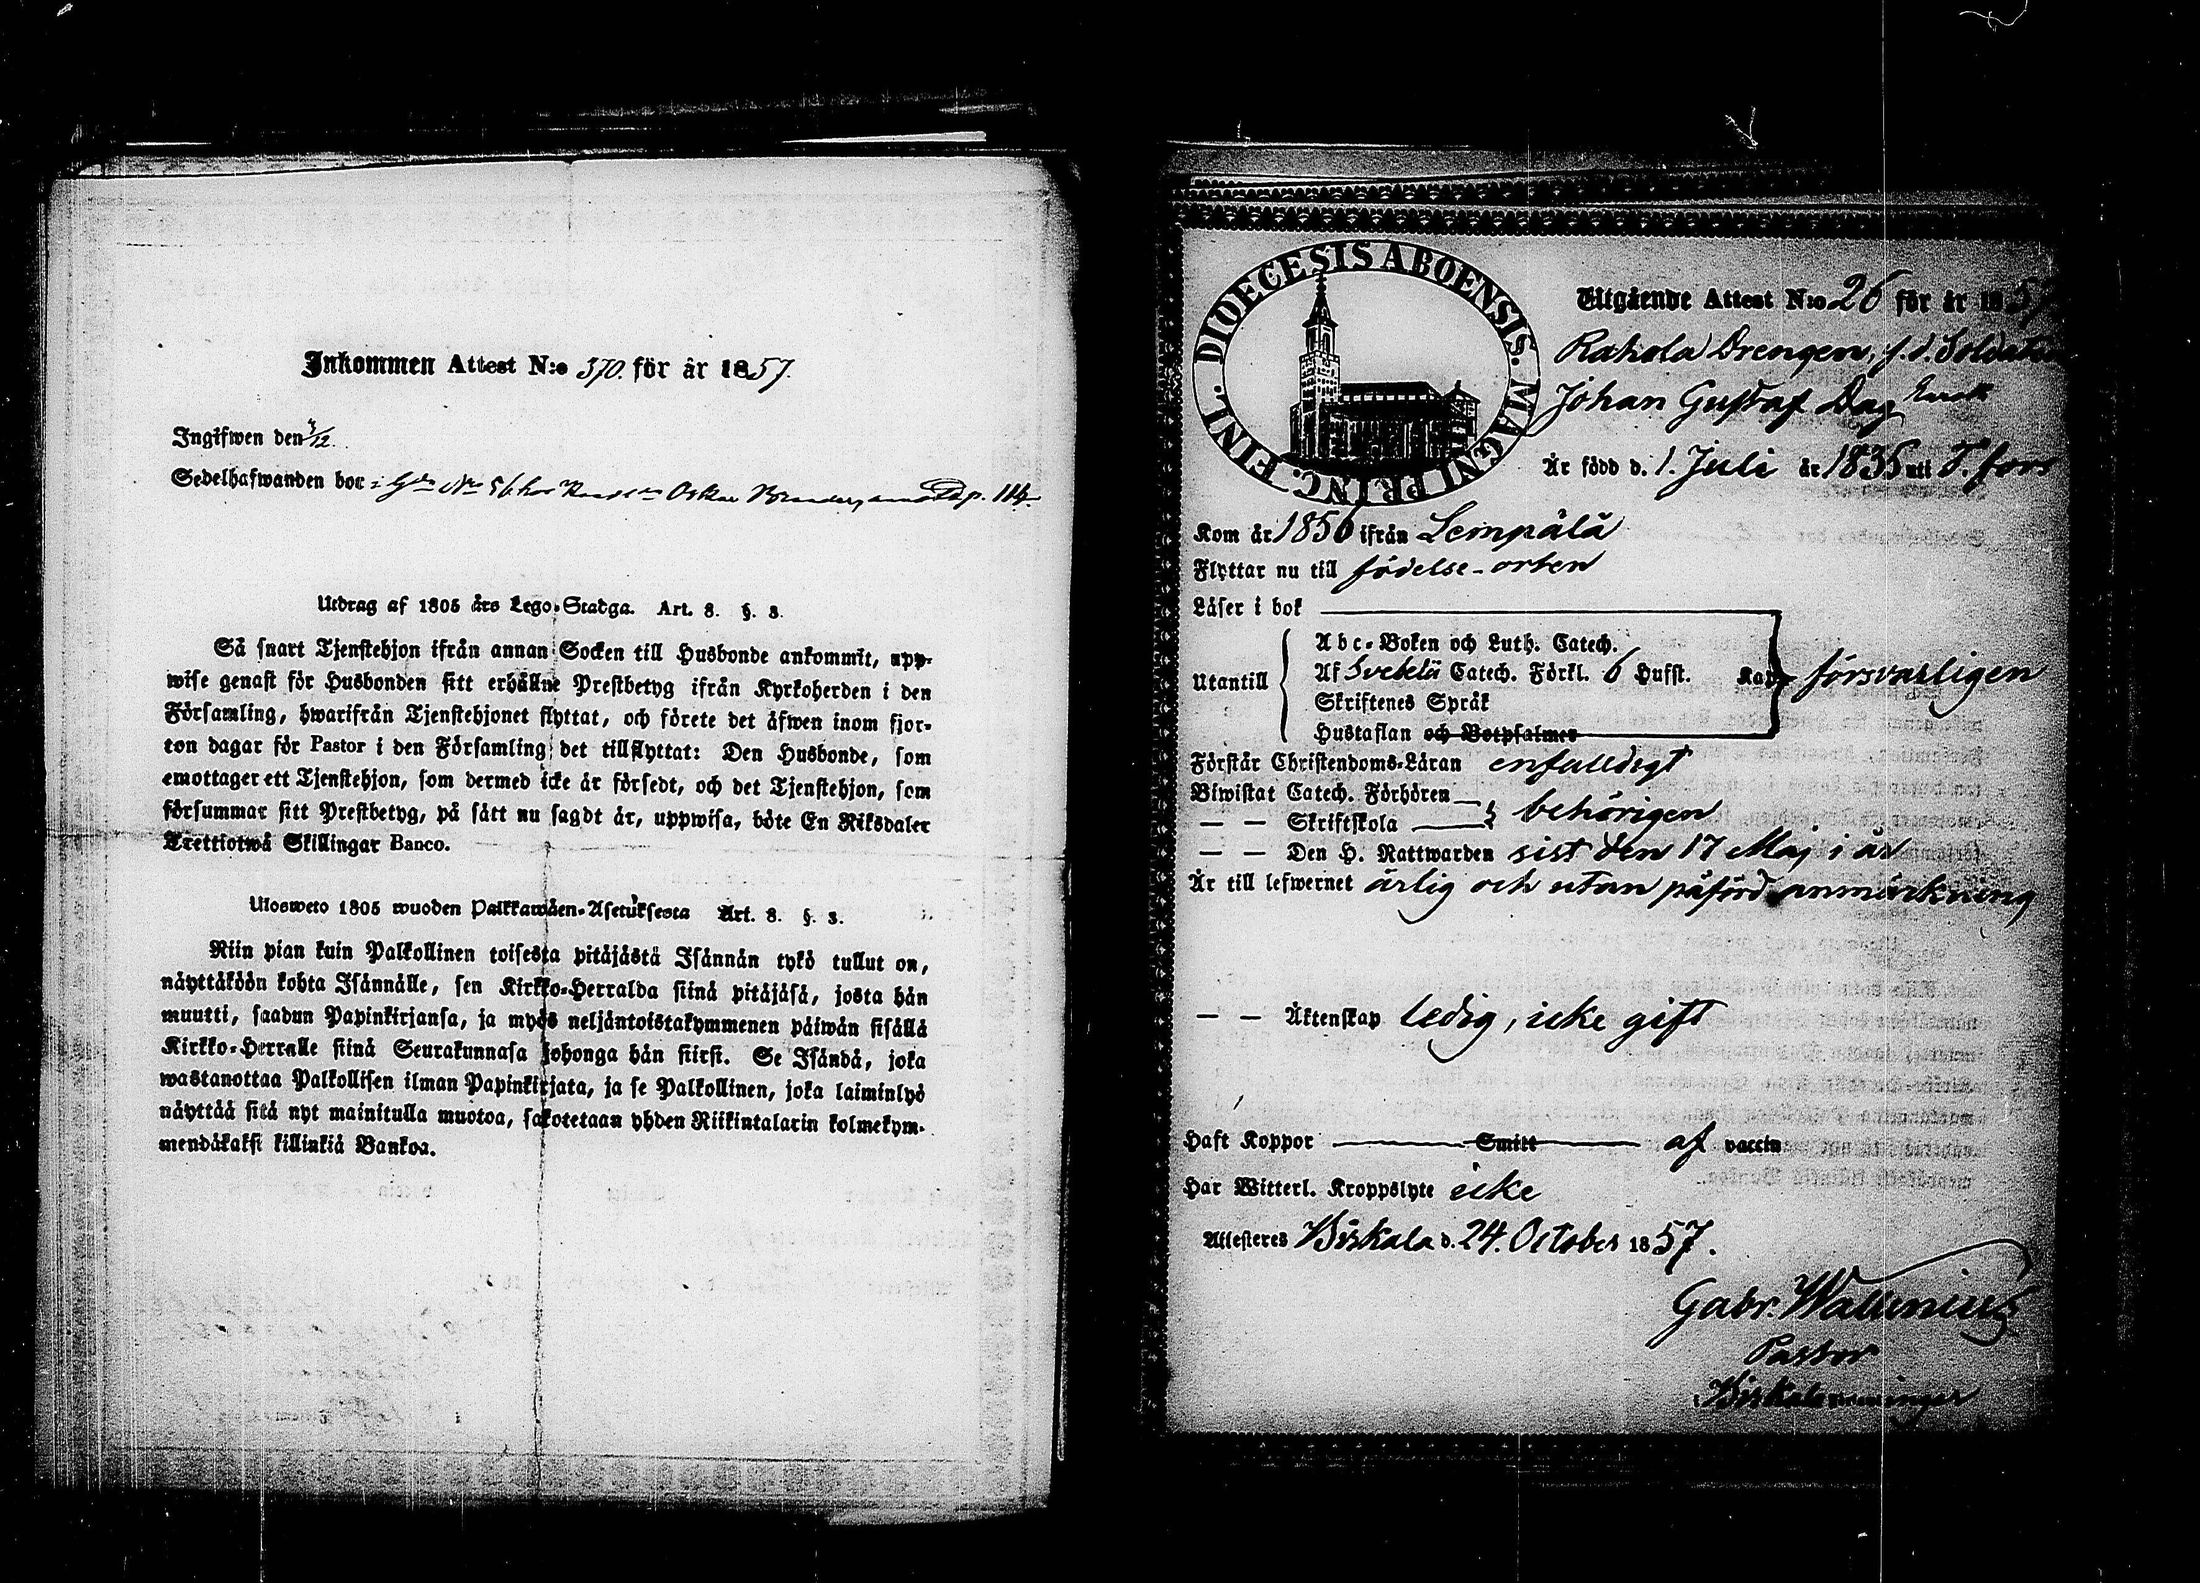 Inkommen Attest N:o 370. för år 1857.
Ingifwen den 3/12.
Sedelhafwanden bor i Gdn No 56 hos Oskar p. 114
Utdrag af 1805 års Lego-Stadga. Art. 8. §. 3.
Så snart Tjenstehjon ifrån annan Socken till Husbonde ankommit, upp-
wise genast för Husbonden sitt erhållne Prestbetyg ifrån Kyrkoherden i den
Församling, hwarifrån Tjenstehjonet flyttat, och förete det äfwen inom fjor-
ton dagar för Pastor i den Församling det tillflyttat: Den Husbonde, som
emottager ett Tjenstehjon, som dermed icke är försedt, och det Tjenstehjon, som
försummar sitt Prestbetyg, på sätt nu sagdt är, uppwisa, böte En Riksdaler
Trettiotwå Skillingar Banco.
Ulosweto 1805 wuoden Palkkawäen-Asetuksesta Art. 8. §. 3.
Niin pian kuin Palkollinen toisesta pitäjästä Isännän tykö tullut on,
näyttäköön kohta Isännälle, sen Kirkko-Herralda siinä pitäjäsä, josta hän
muutti, saadun Papinkirjansa, ja myös neljäntoistakymmenen päiwän sisällä
Kirkko-Herralle siinä Seurakunnasa johonga hän siirsi. Se Isändä, joka
wastanottaa Palkollisen ilman Papinkirjata, ja se Palkollinen, joka laiminlyö
näyttää sitä nyt mainitulla muotoa, sakotetaan yhden Riikintalarin kolmekym-
mendäkaksi killinkiä Bankoa.
DIOECESIS ABOENSIS. MAGNI PRINC. FINL.
Utgående Attest N:o 26 för år 1857
Rahola Drengen, f. d. Soldaten
Johan Gustaf Dag
Är född d. 1. Juli år 1836 uti T.fors
Kom år 1856 ifrån Lempälä
Flyttar nu till födelse-orten
Läser i bok
Utantill
Abc-Boken och Luth. Catech.
Af Svebelii Catech. Förkl. 6 Hufst.
Skriftenes Språk
Hustaflan och Botpsalmer
Kap försvarligen
Förstår Christendoms-Läran enfalldigt
Biwistat Catech. Förhören
— — Skriftskola behörigen
— — Den H. Nattwarden sist den 17 Maj i år
Är till lefwernet ärlig och utan påförd anmärkning
— — Äktenskap ledig, icke gift
Haft Koppor Smitt af vaccin
Har Witterl. Kroppslyte icke
Attesteres Birkala d. 24. October 1857.
Gabr. Wallenius
Pastor
Birkala